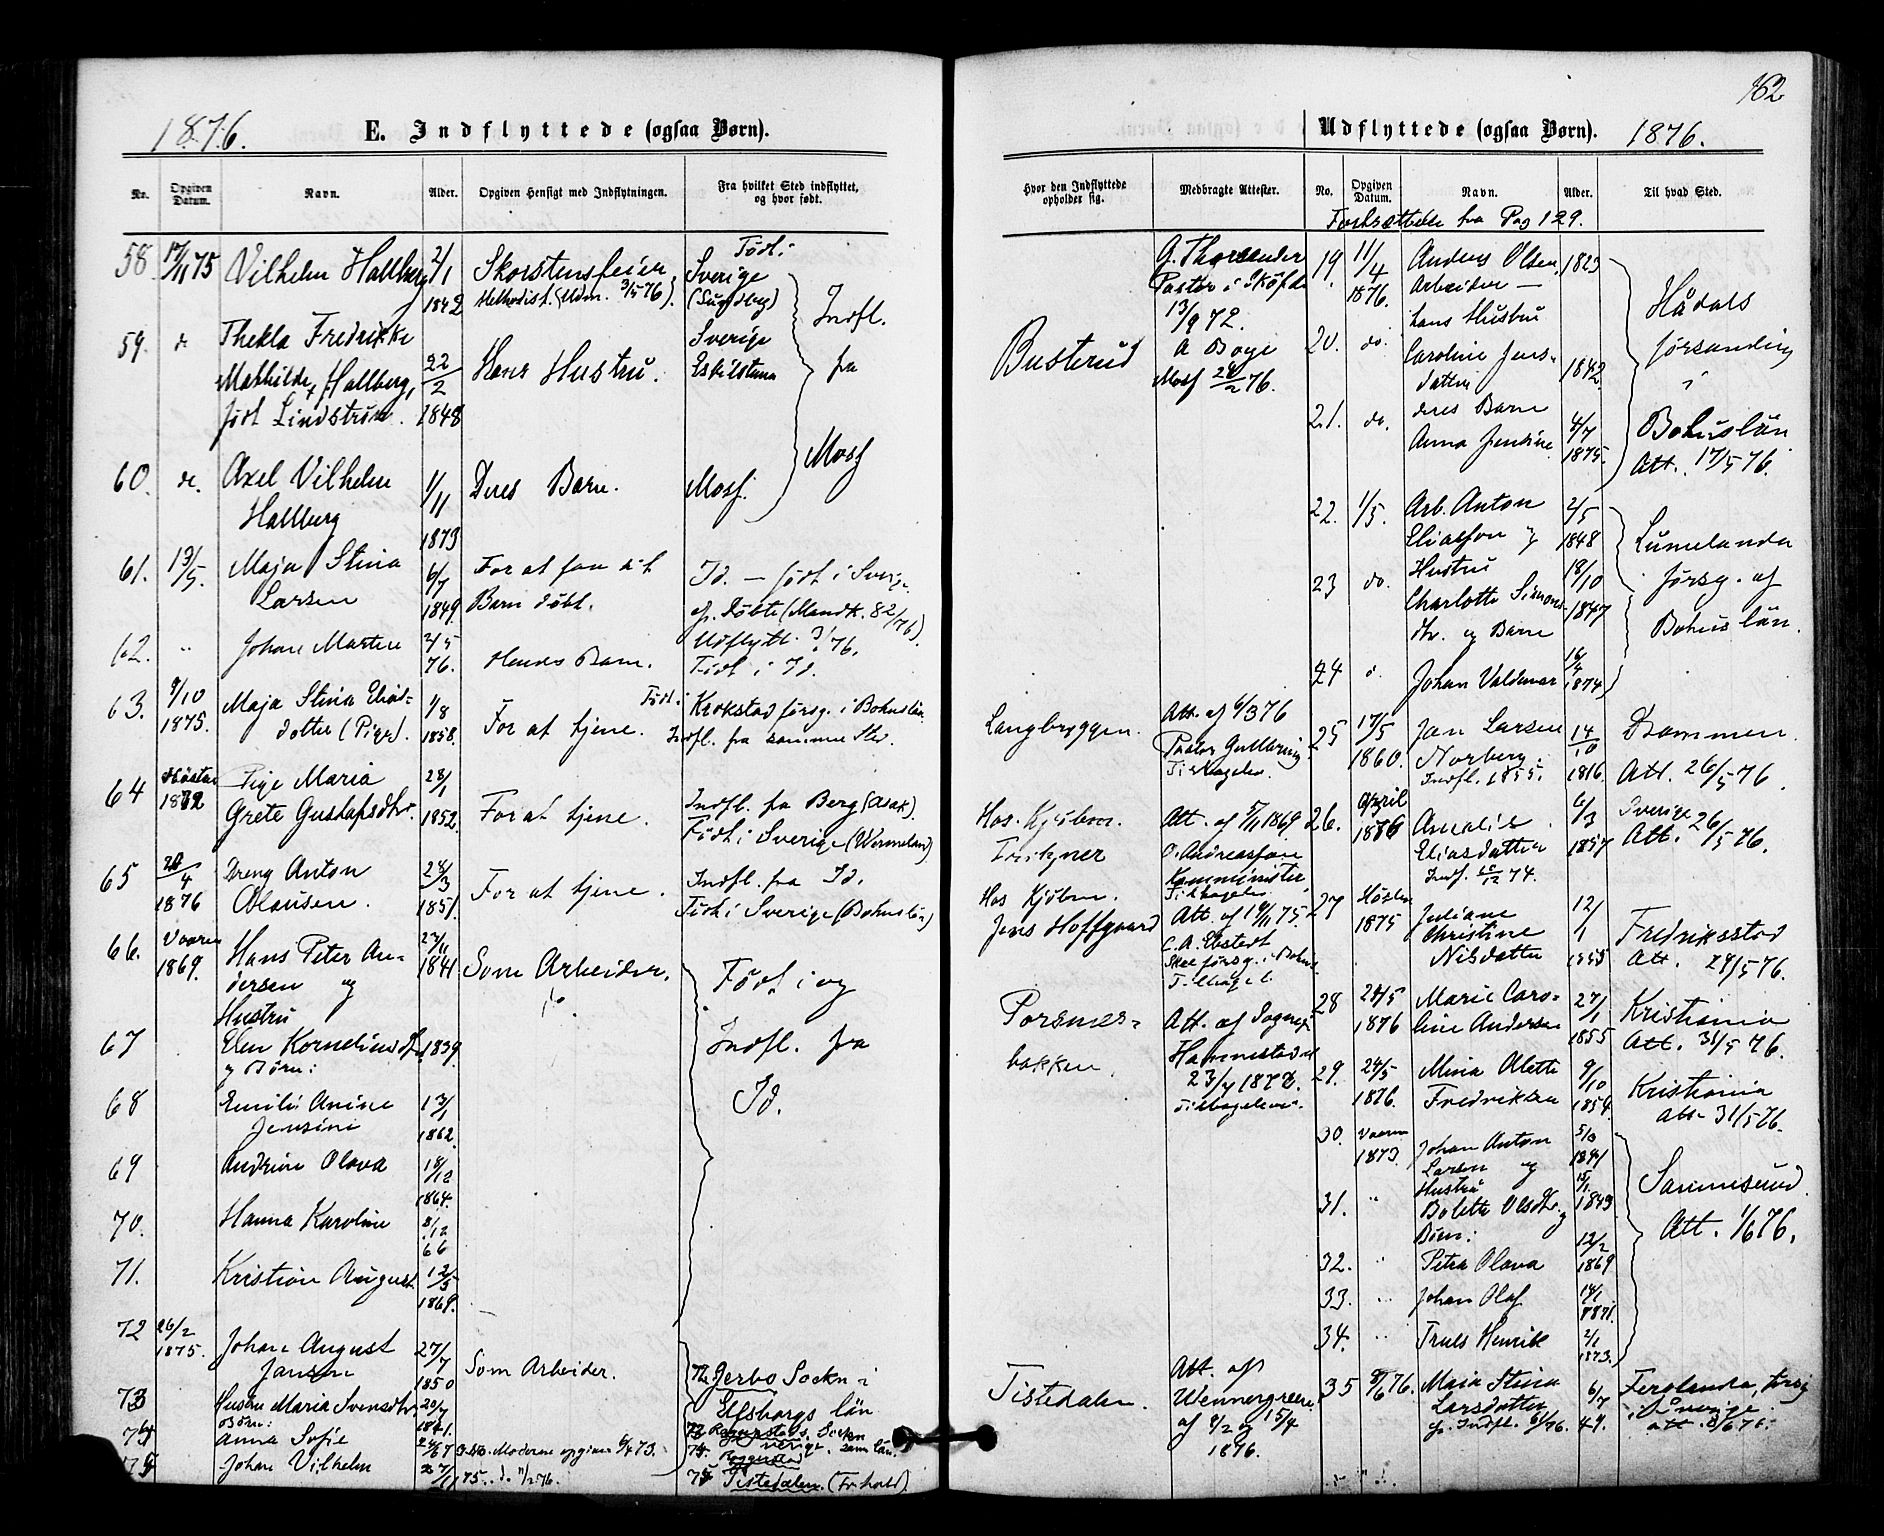 162
1876.
E. Indflyttede (ogsaa Børn).
Udflyttede (ogsaa Børn). 1876.
No.
Opgiven Datum.
Navn.
Alder.
Opgiven Hensigt med Indflytningen.
Fra hvilket Sted indflyttet, og hvor født.
Hvor den Indflyttede opholder sig.
Medbragte Attester.
No.
Opgiven Datum.
Navn.
Alder.
Til hvad Sted.
58 17/11 75 Vilhelm Hallberg 2/1 1842 Skorstensfeier Født: Sverige
Methodist (Udm. 3/5 76). (Sundby)
59. do Thekla Fredrikke
Mathilde Hallberg, 22/2 1848 Hans Hustru. Sverige Eskilstuna
født Lindstrøm.
Indfl. fra Moss
60. do. Axel Vilhelm Hallberg 1/11 1873 Deres Barn. Moss.
61. 13/5. Maja Stina Larsen 6/7 1849. For at faa sit Barn døbt. Id. — født i Sverige
cf. Døbte (Mandk. 82/76)
62. " Johan Martin 76. Hendes Barn. Født i Id.
63. 9/10 1875. Maja Stina Elias-
dotter (Pige). 1/8 1858. For at tjene. Født: Krokstad försg. i Bohuslän
Indfl. fra samme Sted.
64 Høsten Pige Maria
Grete Gustafsdtr. 28/1 1852. For at tjene. Indfl. fra Berg (Asak).
Født i Sverige (Wermeland)
65 20/4 1876 Dreng Anton
Olausen. 24/3 1851. For at tjene. Indfl. fra Id.
Født i Sverige (Bohuslän)
66. Vaaren 1869. Hans Peter An-
dersen og 1841. Som Arbeider. Født i og
Hustru Indfl. fra
67 Elen Korneliusd. 1839. Id.
og Børn:
68 Emilie Anine
Jensine 13/1 1862.
69 Andrine Olava 18/12 1864.
70. Hanna Karoline 8/12 66
71. Kristian August 12/5 1869.
72 26/2 1875. Johan August
Jansen 27/7 1850 Som Arbeider. 72 Jerbo Sockn i
73 Hustru Maria Svensdtr. 20/7 1841. Elfsborgs län
Børn:
74 Anna Sofie
75 Johan Vilhelm 75 Tistedalen. (Fr.hald).
G. Thorsander
Pastor i Sköfde
13/9 72.
Busterud A Boye
Moss 28/2 76.
Langbryggen. Att. af 6/3 76
Pastor Gullbring
Tilbagelev.
Hos Kjøbm. Att. af 5/11 1869
O. Andreasson
Komminister
Tilbagelev.
Hos Kjøbm.
Jens Hoffgaard Att. af 19/11 75.
Tilbagel.
Porsnes-
bakken. Att. af Sognep.
Tilbagelev.
Tistedalen Att. af
Wennergreen
af 9/2 og 15/4
1876.
Fortsættelse fra Pag 129.
19. 11/4 1876. Anders Olsen 1823
Arbeider —
hans Hustru
20. do. Caroline Jens-
datter 1842.
21. do. deres Barn
Anna Jensine 4/7 1875.
Hådals
församling
i
Bohuslän
Att. 17/5 76.
22. 1/5. Arb. Anton
Eliasson og 2/5 1848
23 do. Hustru
Charlotte Simons-
dtr. og Barn 18/10 1847
24 Johan Valdemar 1874
Lumelanda
försg. af
Bohuslän.
25 17/5 1860. Jan Larsen
Norberg. 14/10 1816. Drammen.
Indfl. 1855. Att. 26/5 76.
26. April 1876 Amalie
Eliasdatter 6/3 1857 Sverige
Att. 26/5 76.
27 Høsten 1875 Juliane
Christine
Nilsdatter 12/1 1855 Fredriksstad
Att. 28/5 76.
28 24/5 1876 Marie Caro-
line Andersen 27/1 1855 Kristiania
Att. 31/5 76.
29. 24/5 1876. Mina Alette
Fredriksen 9/10 1854. Kristiania
Att. 31/5 76.
30. Vaaren 1873. Johan Anton
Larsen og
Hustru
31. " Bolette Olsdtr. og 1849
Børn:
32. " Petra Olava 12/2 1869
33. " Johan Olaf 1871.
34. " Truls Henrik 2/1 1873.
Sannesund.
Att. 1/6 76.
35 8/6 76. Maja Stina
Larsdotter 6/7 49. Ferglanda, försg.
cf. Indfl. 61/76. i Sverige.
att. 8/6 76.